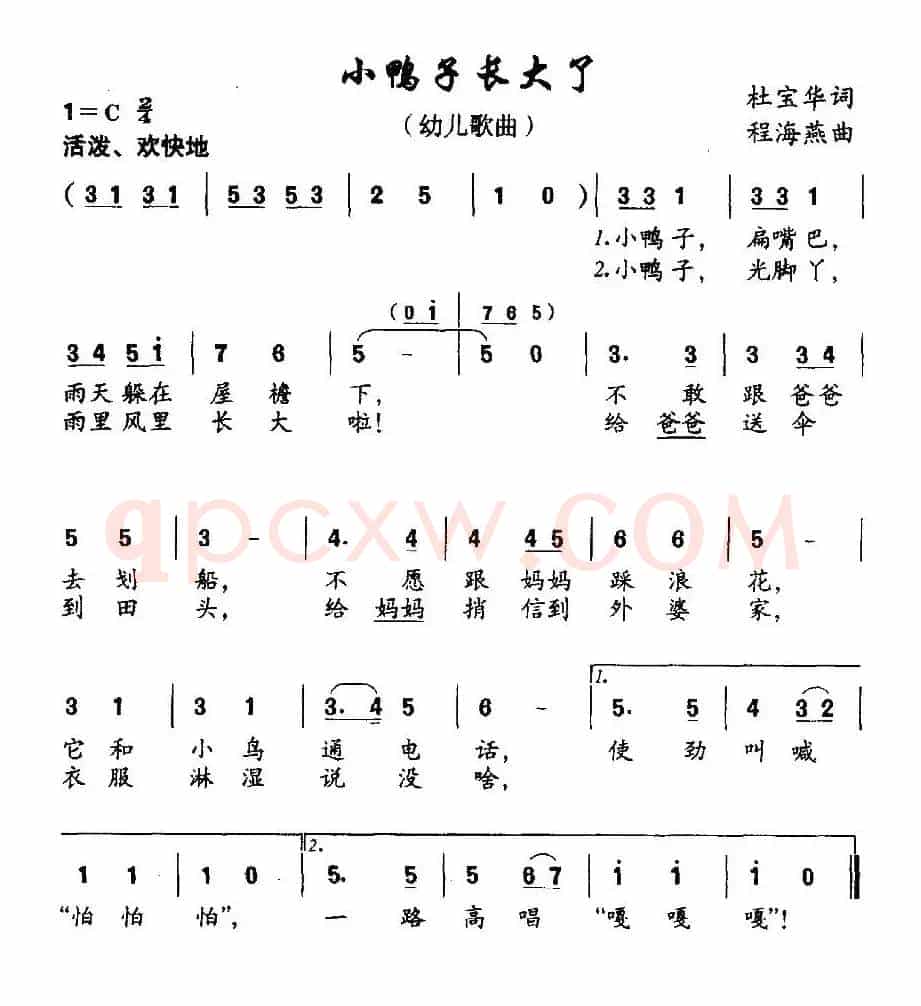 小鸭子长大了
1=C 2/4
(幼儿歌曲)
杜宝华词
程海燕曲
活泼、欢快地
(3 1 3 1 | 5 3 5 3 | 2 5 | 1 0) | 3 3 1 | 3 3 1 |
1.小鸭子, 扁嘴巴,
2.小鸭子, 光脚丫,
(0 i | 7 6 5)
3 4 5 i | 7 6 | 5 - | 5 0 | 3. 3 | 3 3 4 |
雨天躲在 屋檐下, 不敢跟爸爸
雨里风里 长大啦! 给爸爸送伞
qpcxw.COM
5 5 | 3 - | 4. 4 | 4 4 5 | 6 6 | 5 - |
去划船, 不愿跟妈妈踩浪花,
到田头, 给妈妈捎信到外婆家,
1. 
3 1 | 3 1 | 3. 4 5 | 6 - | 5. 5 | 4 3 2 |
它和小鸟通电话, 使劲叫喊
衣服淋湿说没啥,
2.
1 1 | 1 0 | 5. 5 | 5 6 7 | i i | i 0 ‖
“怕怕怕”, 一路高唱“嘎嘎嘎”!